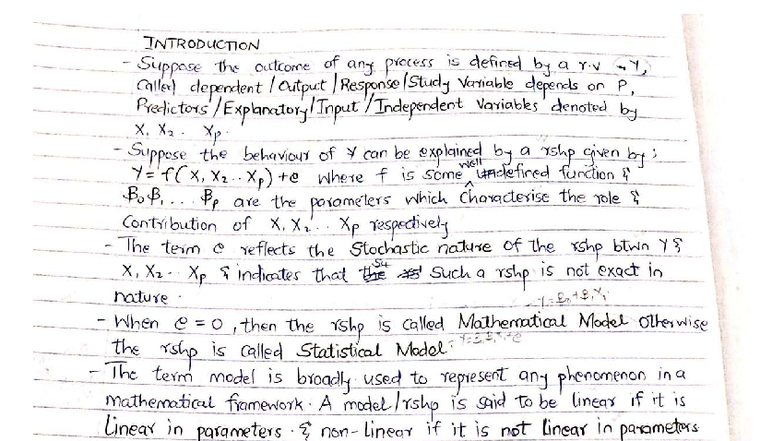 INTRODUCTION
- Suppose the outcome of any process is defined by a r.v Y,
Called dependent/Output/Response/Study Variable depends on P,
Predictors/Explanatory/Input/Independent variables denoted by
X₁ X₂ .. Xp.
- Suppose the behaviour of Y can be explained by a rshp given by;
Y = f(X₁ X₂ .. Xp) + e where f is some well defined function &
β₀ β₁ ... βp are the parameters which characterise the role &
Contribution of X₁ X₂ .. Xp respectively
- The term e reflects the Stochastic nature of the rshp btwn Y &
X₁ X₂ .. Xp & indicates that Such a rshp is not exact in
nature.
- When e = 0, then the rshp is called Mathematical Model otherwise
the rshp is called Statistical Model.
- The term model is broadly used to represent any phenomenon in a
mathematical framework. A model/rshp is said to be linear if it is
Linear in parameters. & non-linear if it is not linear in parameters